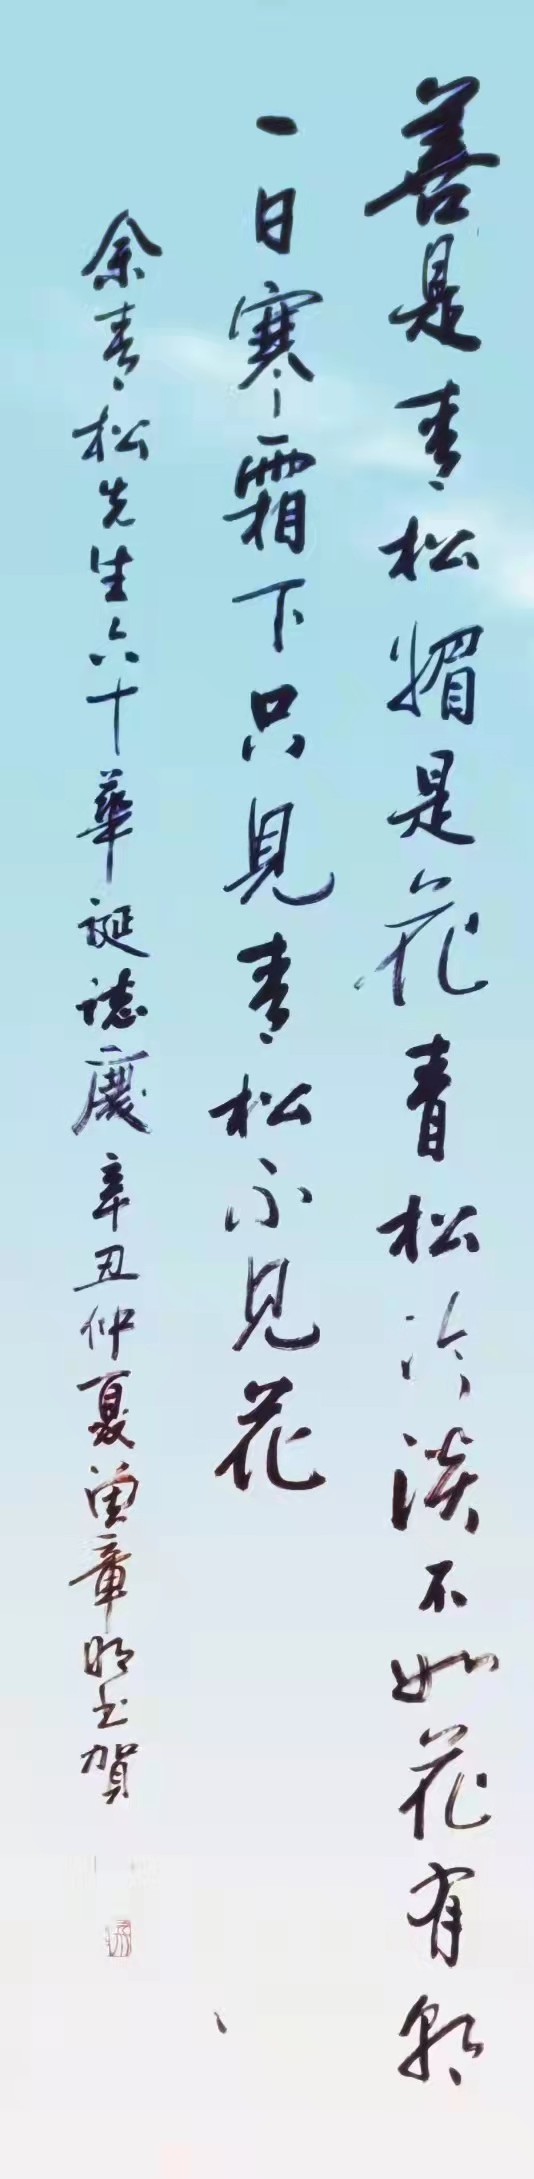 善是青松媚是花青松冷淡不如花有朝
一日寒霜下只見青松不見花
余青松先生六十華誕誌慶辛丑仲夏曾章明书賀